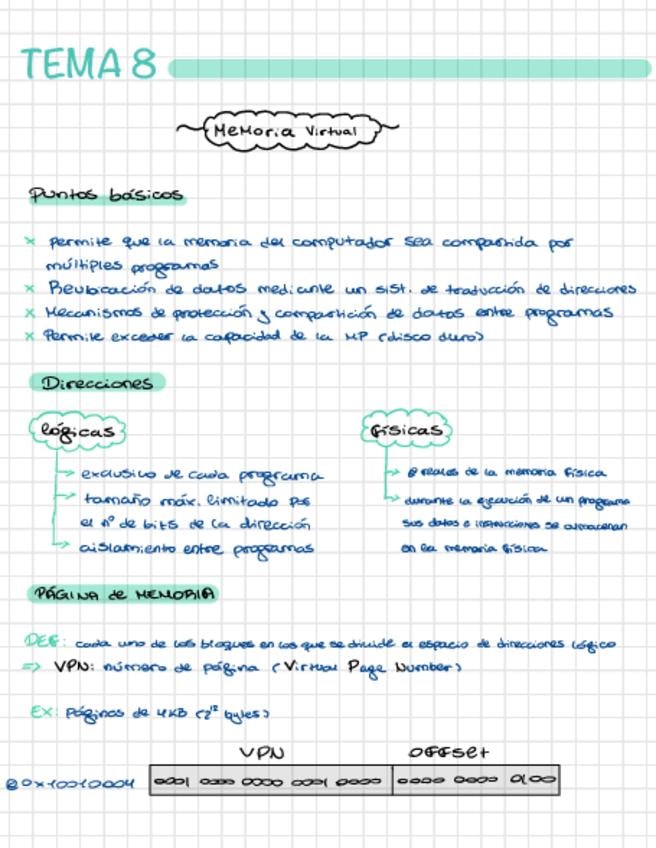 TEMA 8
Memoria Virtual
Puntos básicos
x permite que la memoria del computador sea compartida por
múltiples programas
x Reubicación de datos mediante un sist. de traducción de direcciones
x Mecanismos de protección y compartición de datos entre programas
x Permite exceder la capacidad de la MP (disco duro)
Direcciones
lógicas
→ exclusivo de cada programa
→ tamaño máx. limitado por
el nº de bits de la dirección
→ aislamiento entre programas
físicas
→ @ reales de la memoria física
→ durante la ejecución de un programa
sus datos e instrucciones se almacenan
en la memoria física
PÁGINA de MEMORIA
DEF: cada uno de los bloques en los que se divide el espacio de direcciones lógico
=> VPN: número de página (Virtual Page Number)
EX: Páginas de 4KB (2¹² bytes)
VPN OFFSet
@0x10010004 0001 0000 0000 0001 0000 0000 0000 0100